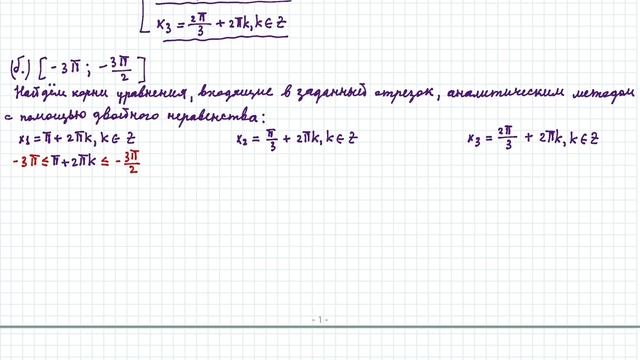 x₃ = 2π/3 + 2πk, k ∈ Z
(б.) [-3π; -3π/2]
Найдём корни уравнения, входящие в заданный отрезок, аналитическим методом
с помощью двойного неравенства:
x₁ = π + 2πk, k ∈ Z x₂ = π/3 + 2πk, k ∈ Z x₃ = 2π/3 + 2πk, k ∈ Z
-3π ≤ π + 2πk ≤ -3π/2
- 1 -